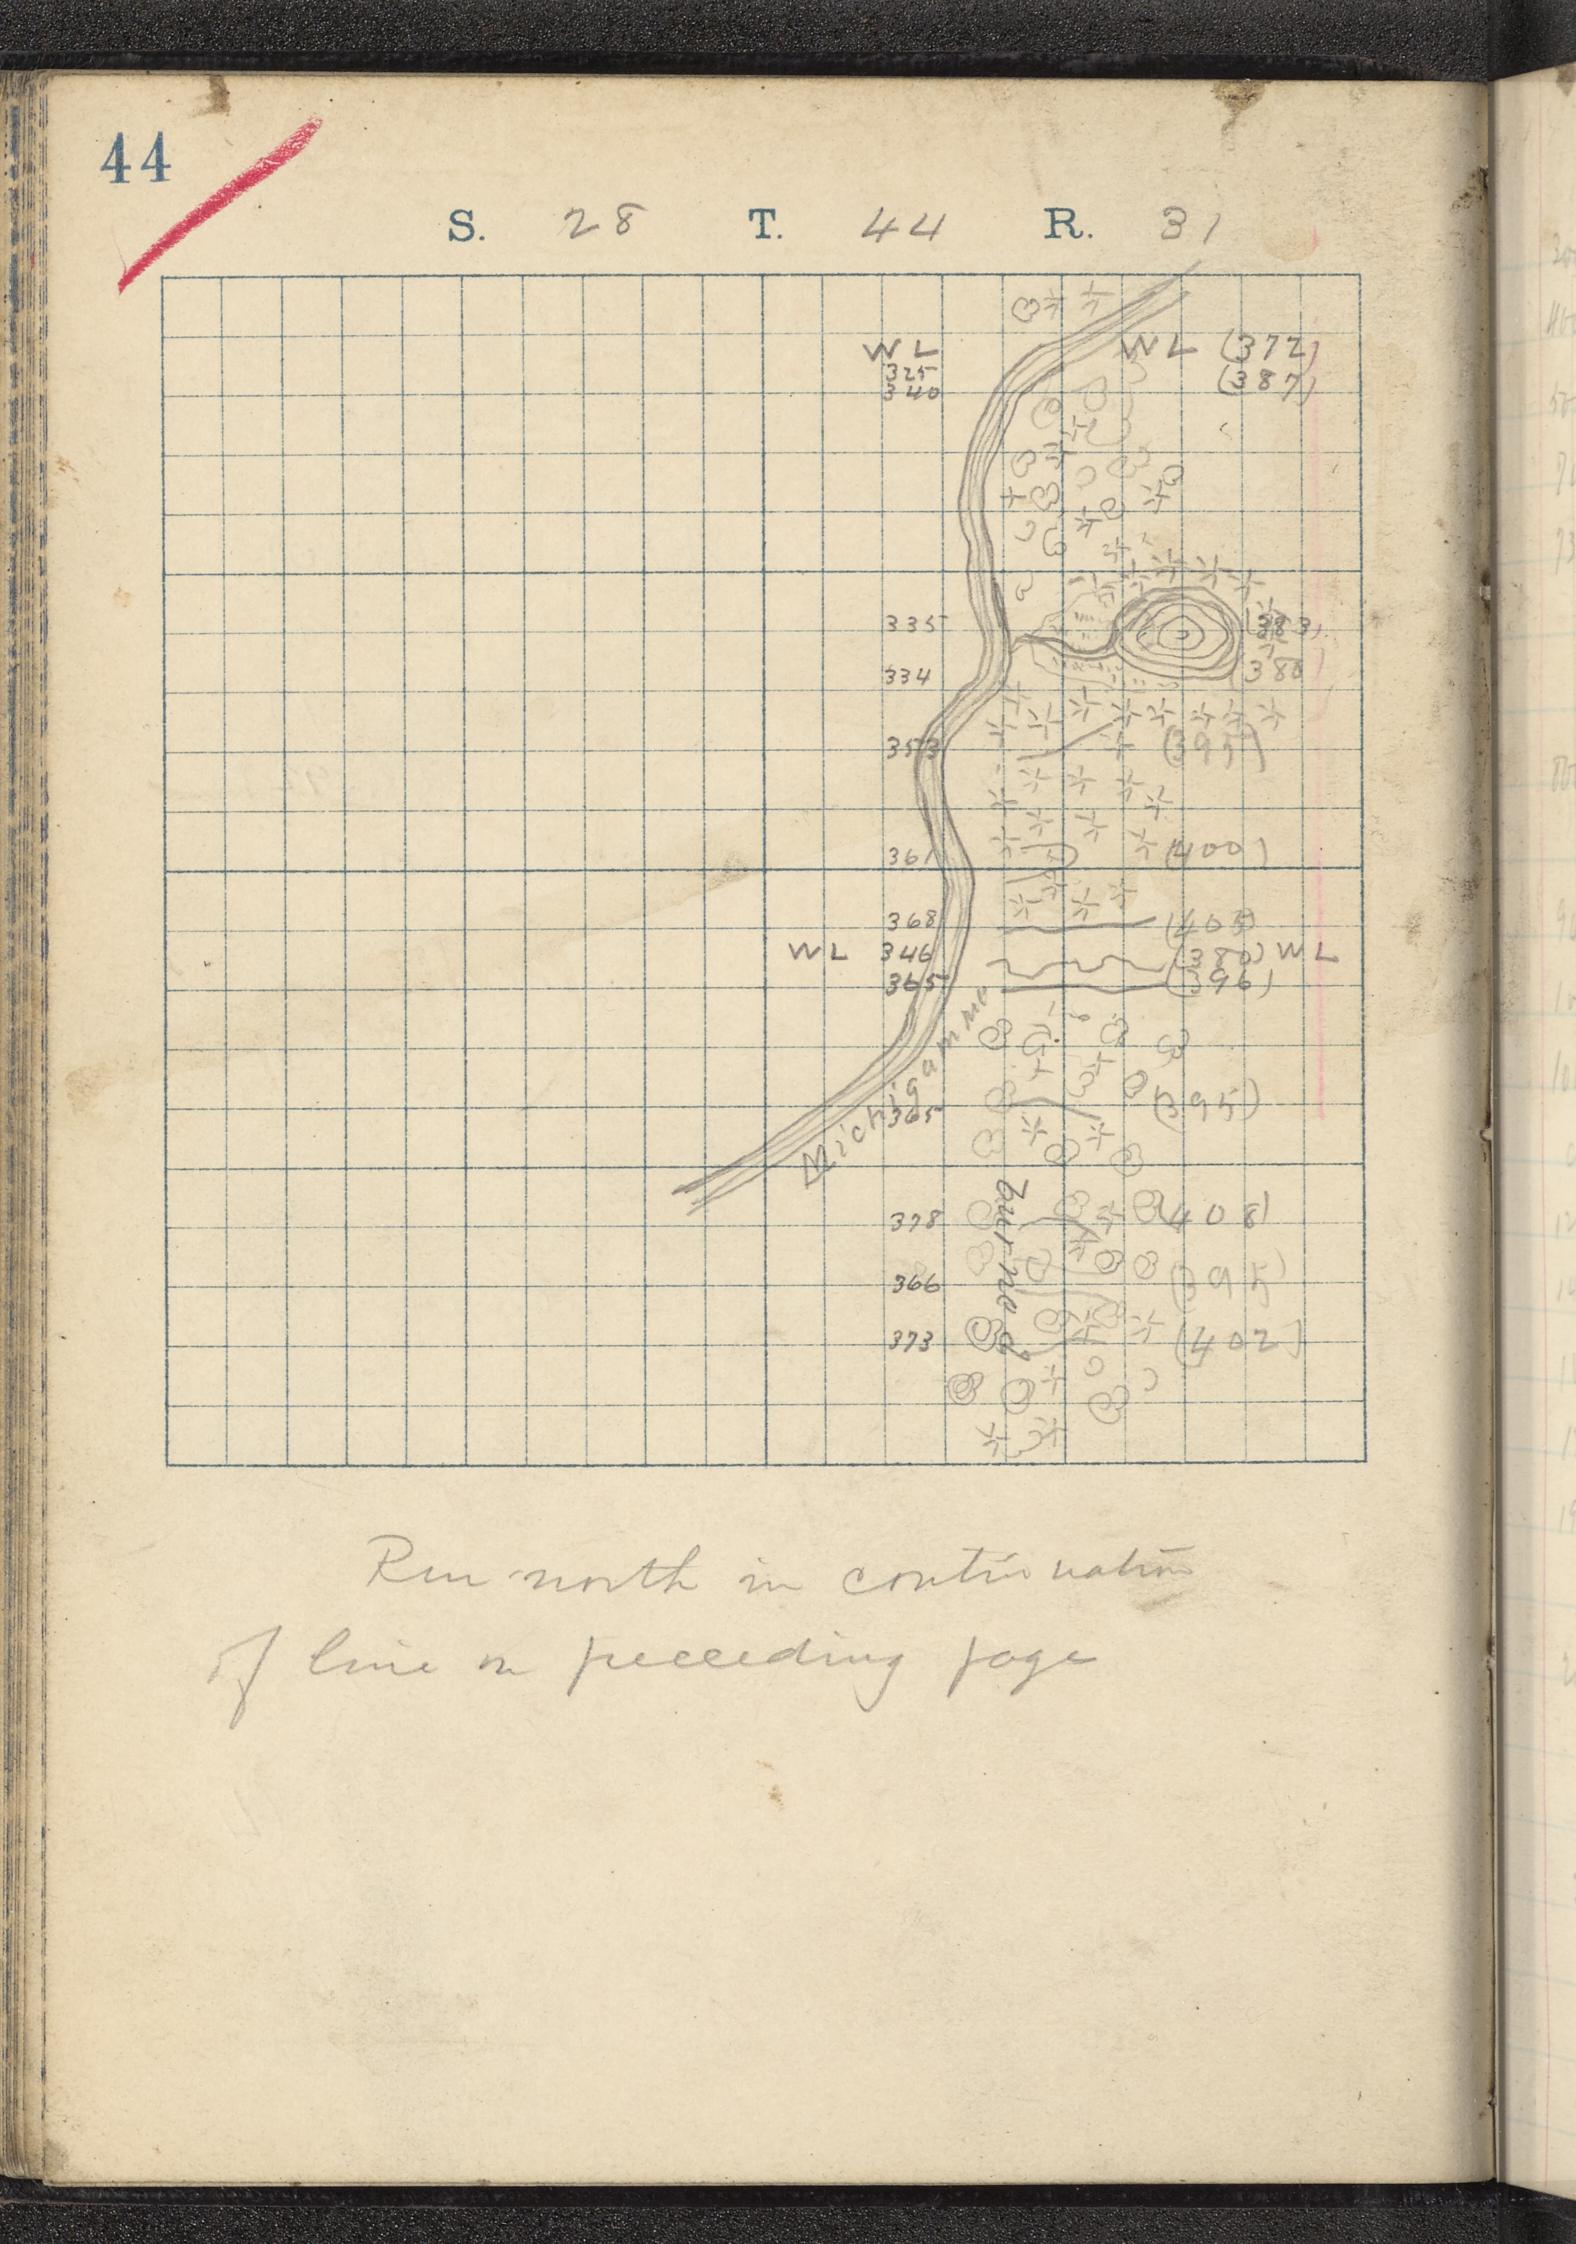 44
S. 28 T. 44 R. 31
WL WL (372)
325 (387)
340
335 (383)
334 380
353 (395)
361 (400)
368 (405)
WL 346 (380) WL
365 (396)
Michigamme
365 (395)
burned
378 (408)
366 (395)
373 (402)
Run north in continuation
of line on preceeding page